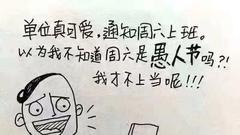 单位真可爱,通知周六上班。
以为我不知道周六是愚人节吗?!
我才不上当呢!!!